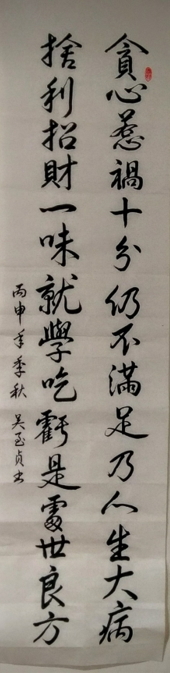 貪心惹禍十分仍不滿足乃人生大病
捨利招財一味就學吃虧是處世良方
丙申年季秋 吴玉貞书